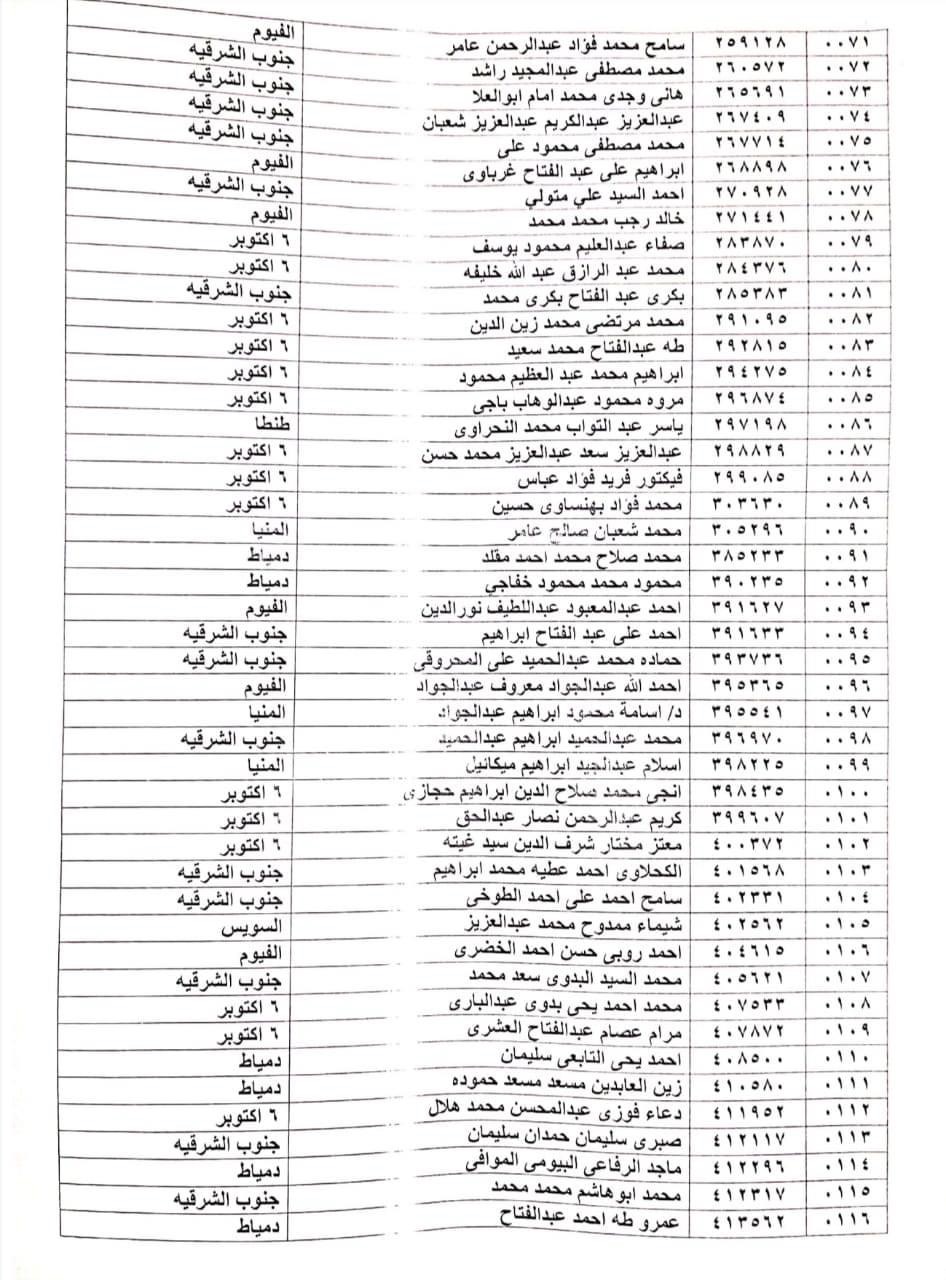 ٠٠٧١ ٢٥٩١٢٨ سامح محمد فؤاد عبدالرحمن عامر الفيوم
٠٠٧٢ ٢٦٠٥٧٢ محمد مصطفى عبدالمجيد راشد جنوب الشرقيه
٠٠٧٣ ٢٦٥٦٩١ هانى وجدى محمد امام ابوالعلا جنوب الشرقيه
٠٠٧٤ ٢٦٧٤٠٩ عبدالعزيز عبدالكريم عبدالعزيز شعبان جنوب الشرقيه
٠٠٧٥ ٢٦٧٧١٤ محمد مصطفى محمود على جنوب الشرقيه
٠٠٧٦ ٢٦٨٨٩٨ ابراهيم على عبد الفتاح غرباوى الفيوم
٠٠٧٧ ٢٧٠٩٢٨ احمد السيد علي متولي جنوب الشرقيه
٠٠٧٨ ٢٧١٤٤١ خالد رجب محمد محمد الفيوم
٠٠٧٩ ٢٨٣٨٧٠ صفاء عبدالعليم محمود يوسف ٦ اكتوبر
٠٠٨٠ ٢٨٤٣٧٦ محمد عبد الرازق عبد الله خليفه ٦ اكتوبر
٠٠٨١ ٢٨٥٣٨٣ بكرى عبد الفتاح بكرى محمد جنوب الشرقيه
٠٠٨٢ ٢٩١٠٩٥ محمد مرتضى محمد زين الدين ٦ اكتوبر
٠٠٨٣ ٢٩٢٨١٥ طه عبدالفتاح محمد سعيد ٦ اكتوبر
٠٠٨٤ ٢٩٤٢٧٥ ابراهيم محمد عبد العظيم محمود ٦ اكتوبر
٠٠٨٥ ٢٩٦٨٧٤ مروه محمود عبدالوهاب باجى ٦ اكتوبر
٠٠٨٦ ٢٩٧١٩٨ ياسر عبد التواب محمد النحراوى طنطا
٠٠٨٧ ٢٩٨٨٢٩ عبدالعزيز سعد عبدالعزيز محمد حسن ٦ اكتوبر
٠٠٨٨ ٢٩٩٠٨٥ فيكتور فريد فؤاد عباس ٦ اكتوبر
٠٠٨٩ ٣٠٣٦٣٠ محمد فؤاد بهنساوى حسين ٦ اكتوبر
٠٠٩٠ ٣٠٥٢٩٦ محمد شعبان صالح عامر المنيا
٠٠٩١ ٣٨٥٢٣٣ محمد صلاح محمد احمد مقلد دمياط
٠٠٩٢ ٣٩٠٢٣٥ محمود محمد محمود خفاجي دمياط
٠٠٩٣ ٣٩١٦٢٧ احمد عبدالمعبود عبداللطيف نورالدين الفيوم
٠٠٩٤ ٣٩١٦٣٣ احمد على عبد الفتاح ابراهيم جنوب الشرقيه
٠٠٩٥ ٣٩٣٧٣٦ حماده محمد عبدالحميد على المحروقى جنوب الشرقيه
٠٠٩٦ ٣٩٥٣٦٥ احمد الله عبدالجواد معروف عبدالجواد الفيوم
٠٠٩٧ ٣٩٥٥٤١ د/ اسامة محمود ابراهيم عبدالجواد المنيا
٠٠٩٨ ٣٩٦٩٧٠ محمد عبدالحميد ابراهيم عبدالحميد جنوب الشرقيه
٠٠٩٩ ٣٩٨٢٢٥ اسلام عبدالجيد ابراهيم ميكائيل المنيا
٠١٠٠ ٣٩٨٤٣٥ انجى محمد صلاح الدين ابراهيم حجازى ٦ اكتوبر
٠١٠١ ٣٩٩٦٠٧ كريم عبدالرحمن نصار عبدالحق ٦ اكتوبر
٠١٠٢ ٤٠٠٣٧٢ معتز مختار شرف الدين سيد غيته ٦ اكتوبر
٠١٠٣ ٤٠١٥٦٨ الكحلاوى احمد عطيه محمد ابراهيم جنوب الشرقيه
٠١٠٤ ٤٠٢٣٣١ سامح احمد على احمد الطوخى جنوب الشرقيه
٠١٠٥ ٤٠٢٥٦٢ شيماء ممدوح محمد عبدالعزيز السويس
٠١٠٦ ٤٠٤٦١٥ احمد روبى حسن احمد الخضرى الفيوم
٠١٠٧ ٤٠٥٦٢١ محمد السيد البدوى سعد محمد جنوب الشرقيه
٠١٠٨ ٤٠٧٥٣٣ محمد احمد يحى بدوى عبدالبارى ٦ اكتوبر
٠١٠٩ ٤٠٧٨٧٢ مرام عصام عبدالفتاح العشرى ٦ اكتوبر
٠١١٠ ٤٠٨٥٠٠ احمد يحى التابعى سليمان دمياط
٠١١١ ٤١٠٥٨٠ زين العابدين مسعد مسعد حموده دمياط
٠١١٢ ٤١١٩٥٢ دعاء فوزى عبدالمحسن محمد هلال ٦ اكتوبر
٠١١٣ ٤١٢١١٧ صبرى سليمان حمدان سليمان جنوب الشرقيه
٠١١٤ ٤١٢٢٩٦ ماجد الرفاعى البيومى الموافى دمياط
٠١١٥ ٤١٢٣١٧ محمد ابوهاشم محمد محمد جنوب الشرقيه
٠١١٦ ٤١٣٥٦٢ عمرو طه احمد عبدالفتاح دمياط